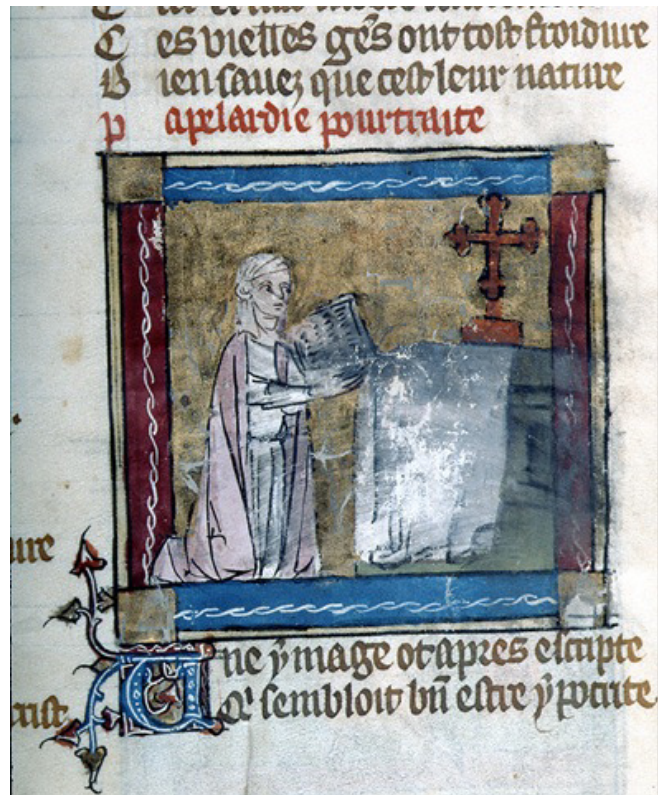 C es vielles gẽs ont tost froidure
B ien sauez que cest leur nature
P apelardie pourtraite
ure
U ne ymage ot apres escripte
Q̃ sembloit bñ estre ypocrite
rist